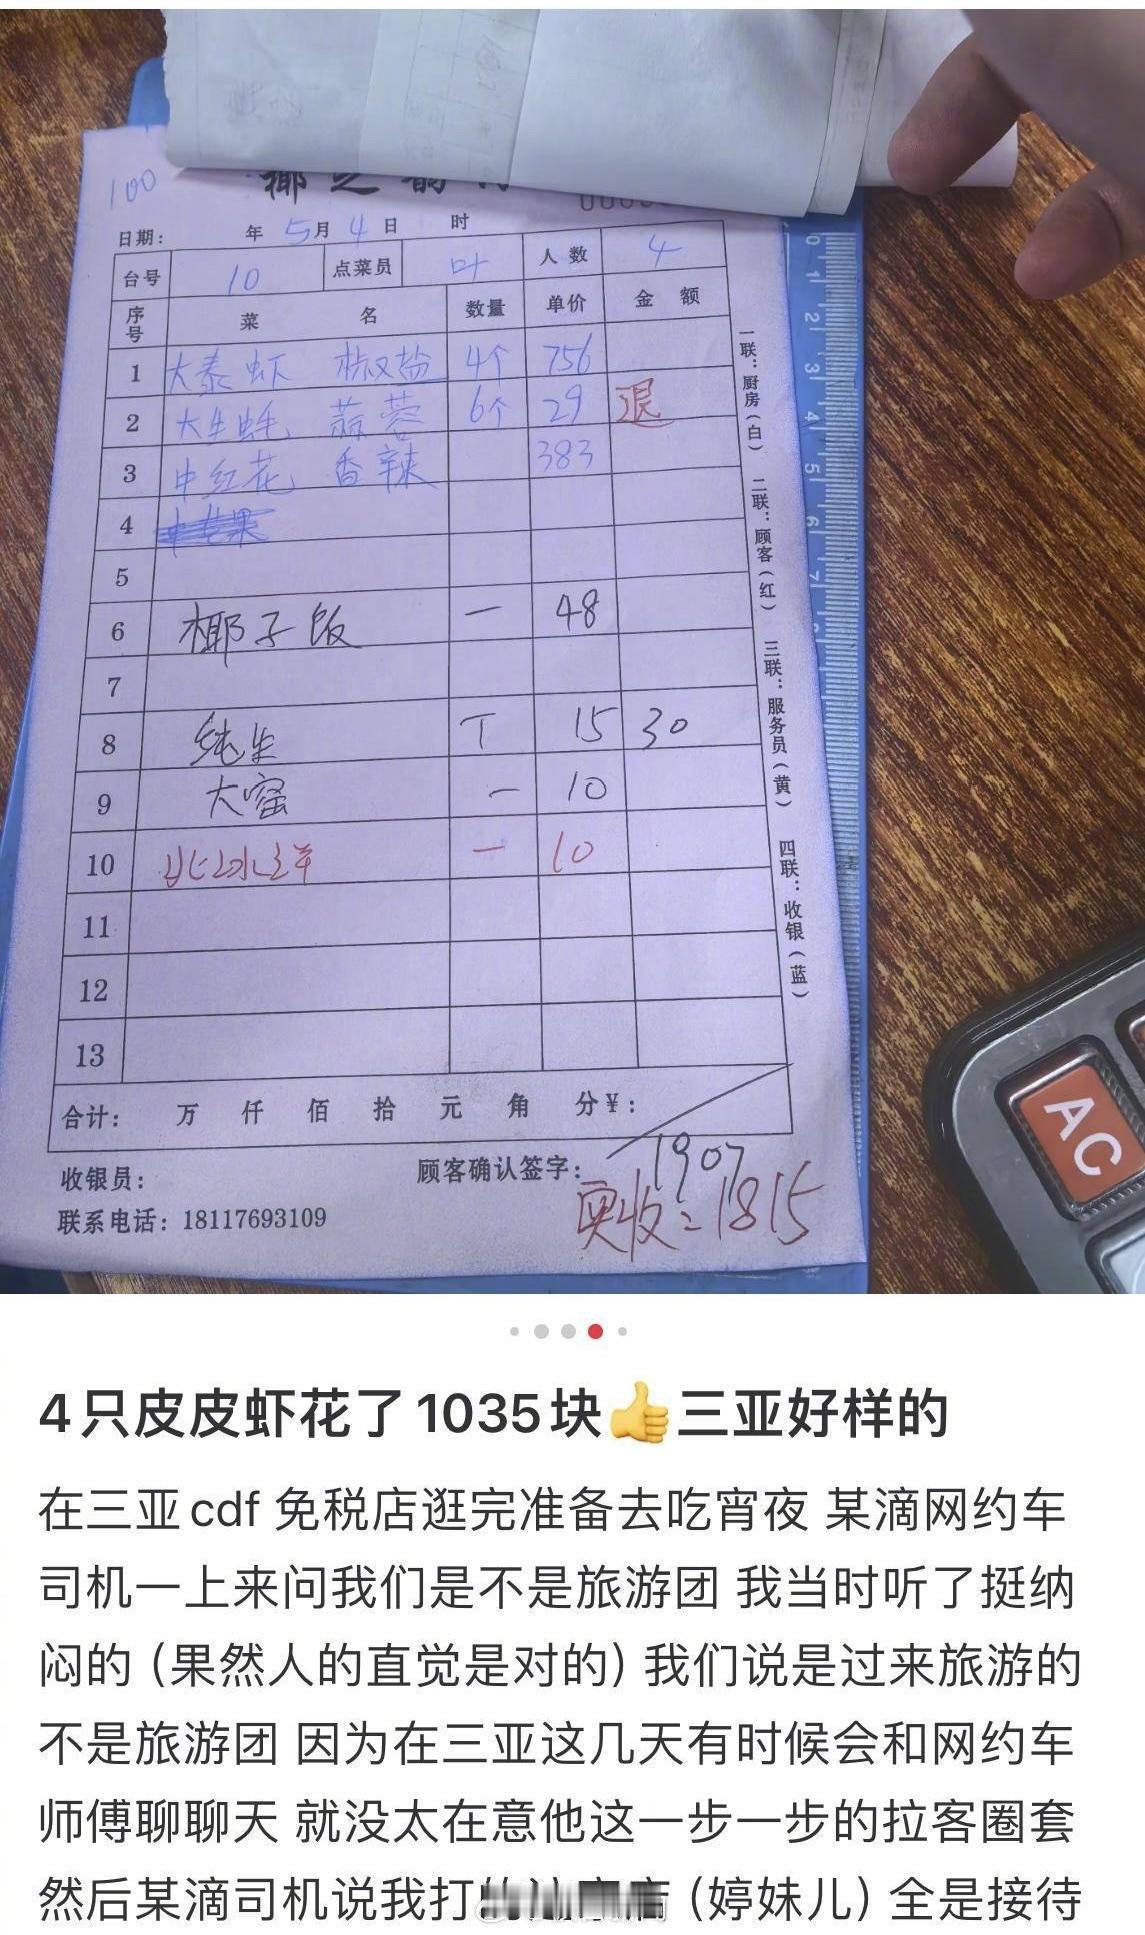 100
椰之韵
日期： 年 5月 4日 时
台号 10 点菜员 叶 人数 4
序号 菜 名 数量 单价 金 额
1 大泰虾 椒盐 4个 756
2 大生蚝 蒜蓉 6个 29 退
3 中红花 香辣 383
4
5
6 椰子饭 一 48
7
8 纯生 T 15 30
9 大窑 一 10
10 北冰洋 一 10
11
12
13
合计： 万 仟 佰 拾 元 角 分¥：
收银员： 顾客确认签字： 1907
联系电话：18117693109 实收：1815
一联：厨房（白） 二联：顾客（红） 三联：服务员（黄） 四联：收银（蓝）
0 1 2 3 4 5 6 7
AC
4只皮皮虾花了1035块👍三亚好样的
在三亚cdf 免税店逛完准备去吃宵夜 某滴网约车
司机一上来问我们是不是旅游团 我当时听了挺纳
闷的（果然人的直觉是对的）我们说是过来旅游的
不是旅游团 因为在三亚这几天有时候会和网约车
师傅聊聊天 就没太在意他这一步一步的拉客圈套
然后某滴司机说我打的这家店（婷妹儿）全是接待